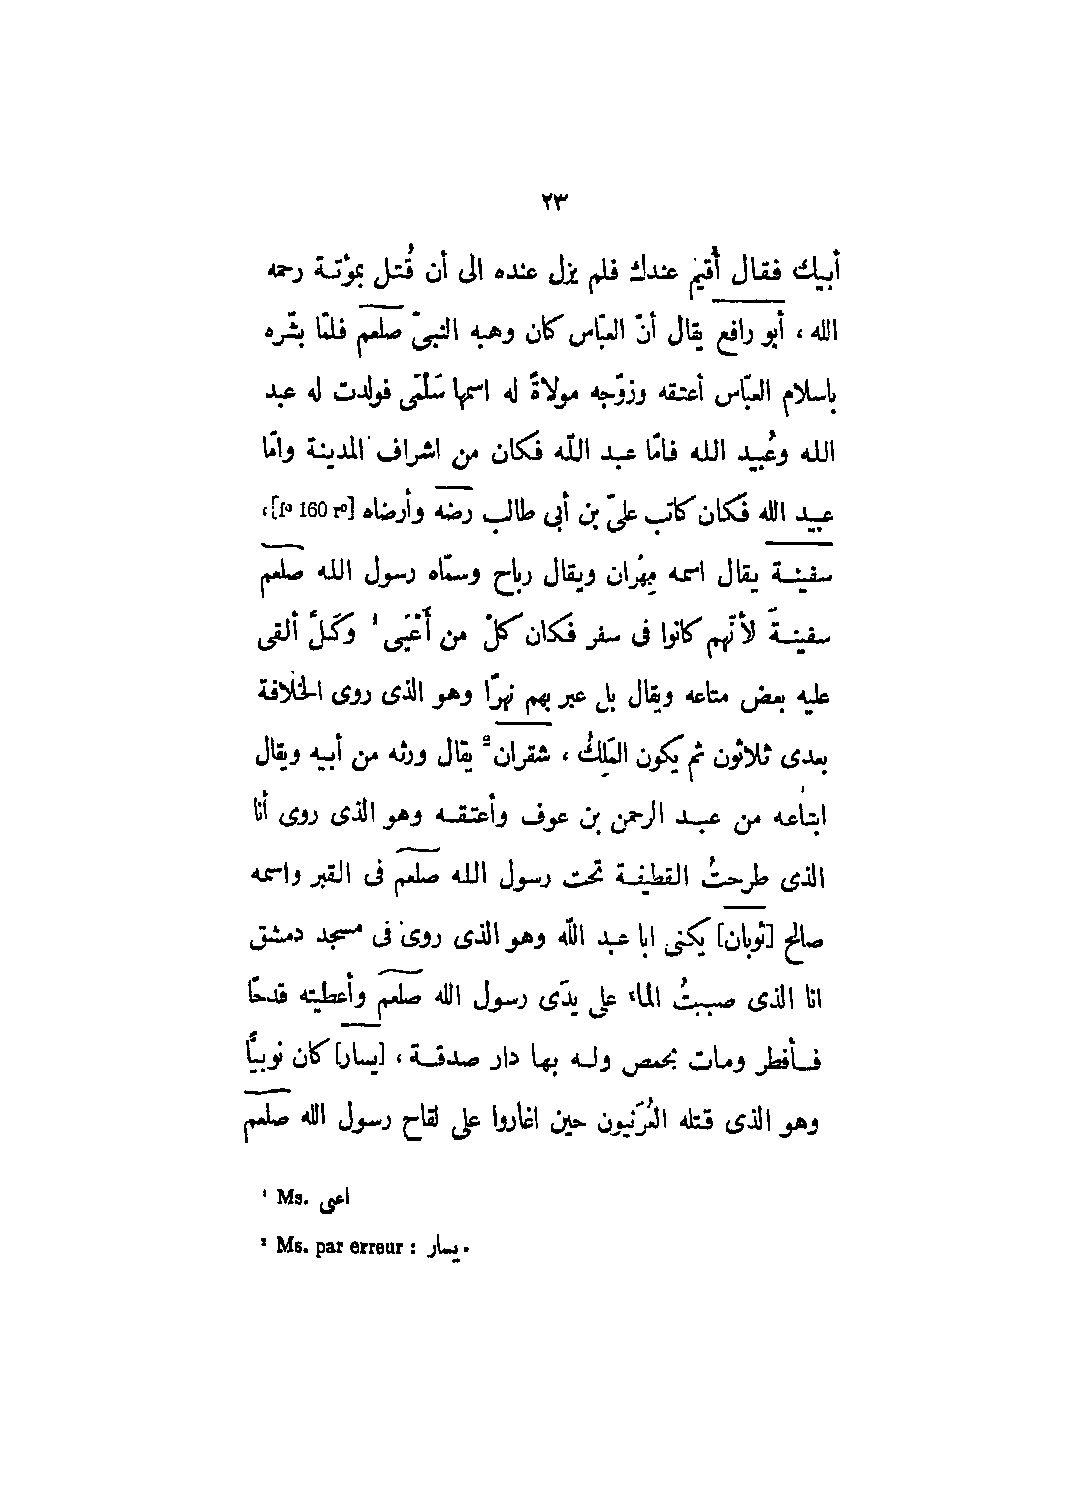 ٢٣
أبيك فقال أُقيم عندك فلم يزل عنده الى أن قُتل بمؤتة رحمه
الله ، أبو رافع يقال أنّ العبّاس كان وهبه النبىّ صلعم فلمّا بشّره
باسلام العبّاس أعتقه وزوّجه مولاةً له اسمها سَلْمَى فولدت له عبد
الله وعُبيد الله فامّا عبد الله فكان من اشراف المدينة وامّا
عبيد الله فكان كاتب علىّ بن أبى طالب رضه وأرضاه [fº 160 rº]،
سفينة يقال اسمه مِهْران ويقال رباح وسمّاه رسول الله صلعم
سفينةً لأنّهم كانوا فى سفر فكان كلّ من أَعْيَى ¹ وكَلَّ ألقى
عليه بعض متاعه ويقال بل عبر بهم نهرًا وهو الذى روى الخلافة
بعدى ثلاثون ثم يكون المَلِكُ ، شقران ² يقال ورثه من أبيه ويقال
ابتاعه من عبد الرحمن بن عوف وأعتقه وهو الذى روى أنا
الذى طرحتُ القطيفة تحت رسول الله صلعم فى القبر واسمه
صالح [ثوبان] يكنى ابا عبد الله وهو الذى روى فى مسجد دمشق
انا الذى صببتُ الماء على يدَى رسول الله صلعم وأعطيته قدحًا
فأفطر ومات بحمص وله بها دار صدقة ، [يسار] كان نوبيًّا
وهو الذى قتله العُرَنيون حين اغاروا على لقاح رسول الله صلعم
¹ Ms. اعى
² Ms. par erreur : يسار.